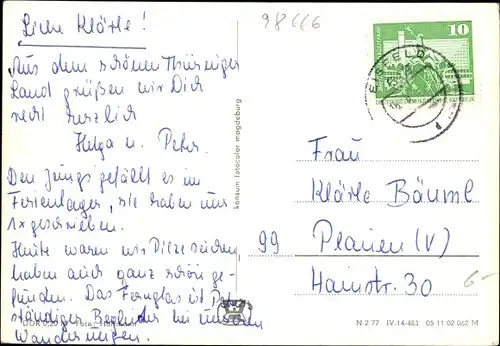 98666
Liebe Klärle!
Aus dem schönen Thüringer
Land grüßen wir Dich
recht herzlich
Helga u. Peter.
Den Jungs gefällt es im
Ferienlager, sie haben uns
1x geschrieben.
Heute waren wir Pilze suchen
haben auch ganz schön ge-
funden. Das Fernglas ist
ständiger Begleiter bei unseren
Wanderungen.
DDR 0,20 M Foto:
konsum fotocolor magdeburg
10
EISFELD
DEUTSCHE DEMOKRATISCHE REPUBLIK
Frau
Klärle Bäuml
99 Plauen (V)
Hainstr. 30
6-
N 2/77 IV-14-483 05 11 02 062 M